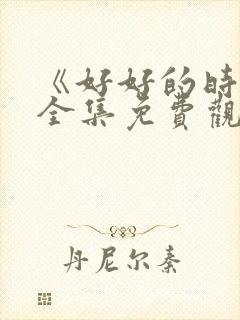 《好好的時
全集免費觀
丹尼尔秦